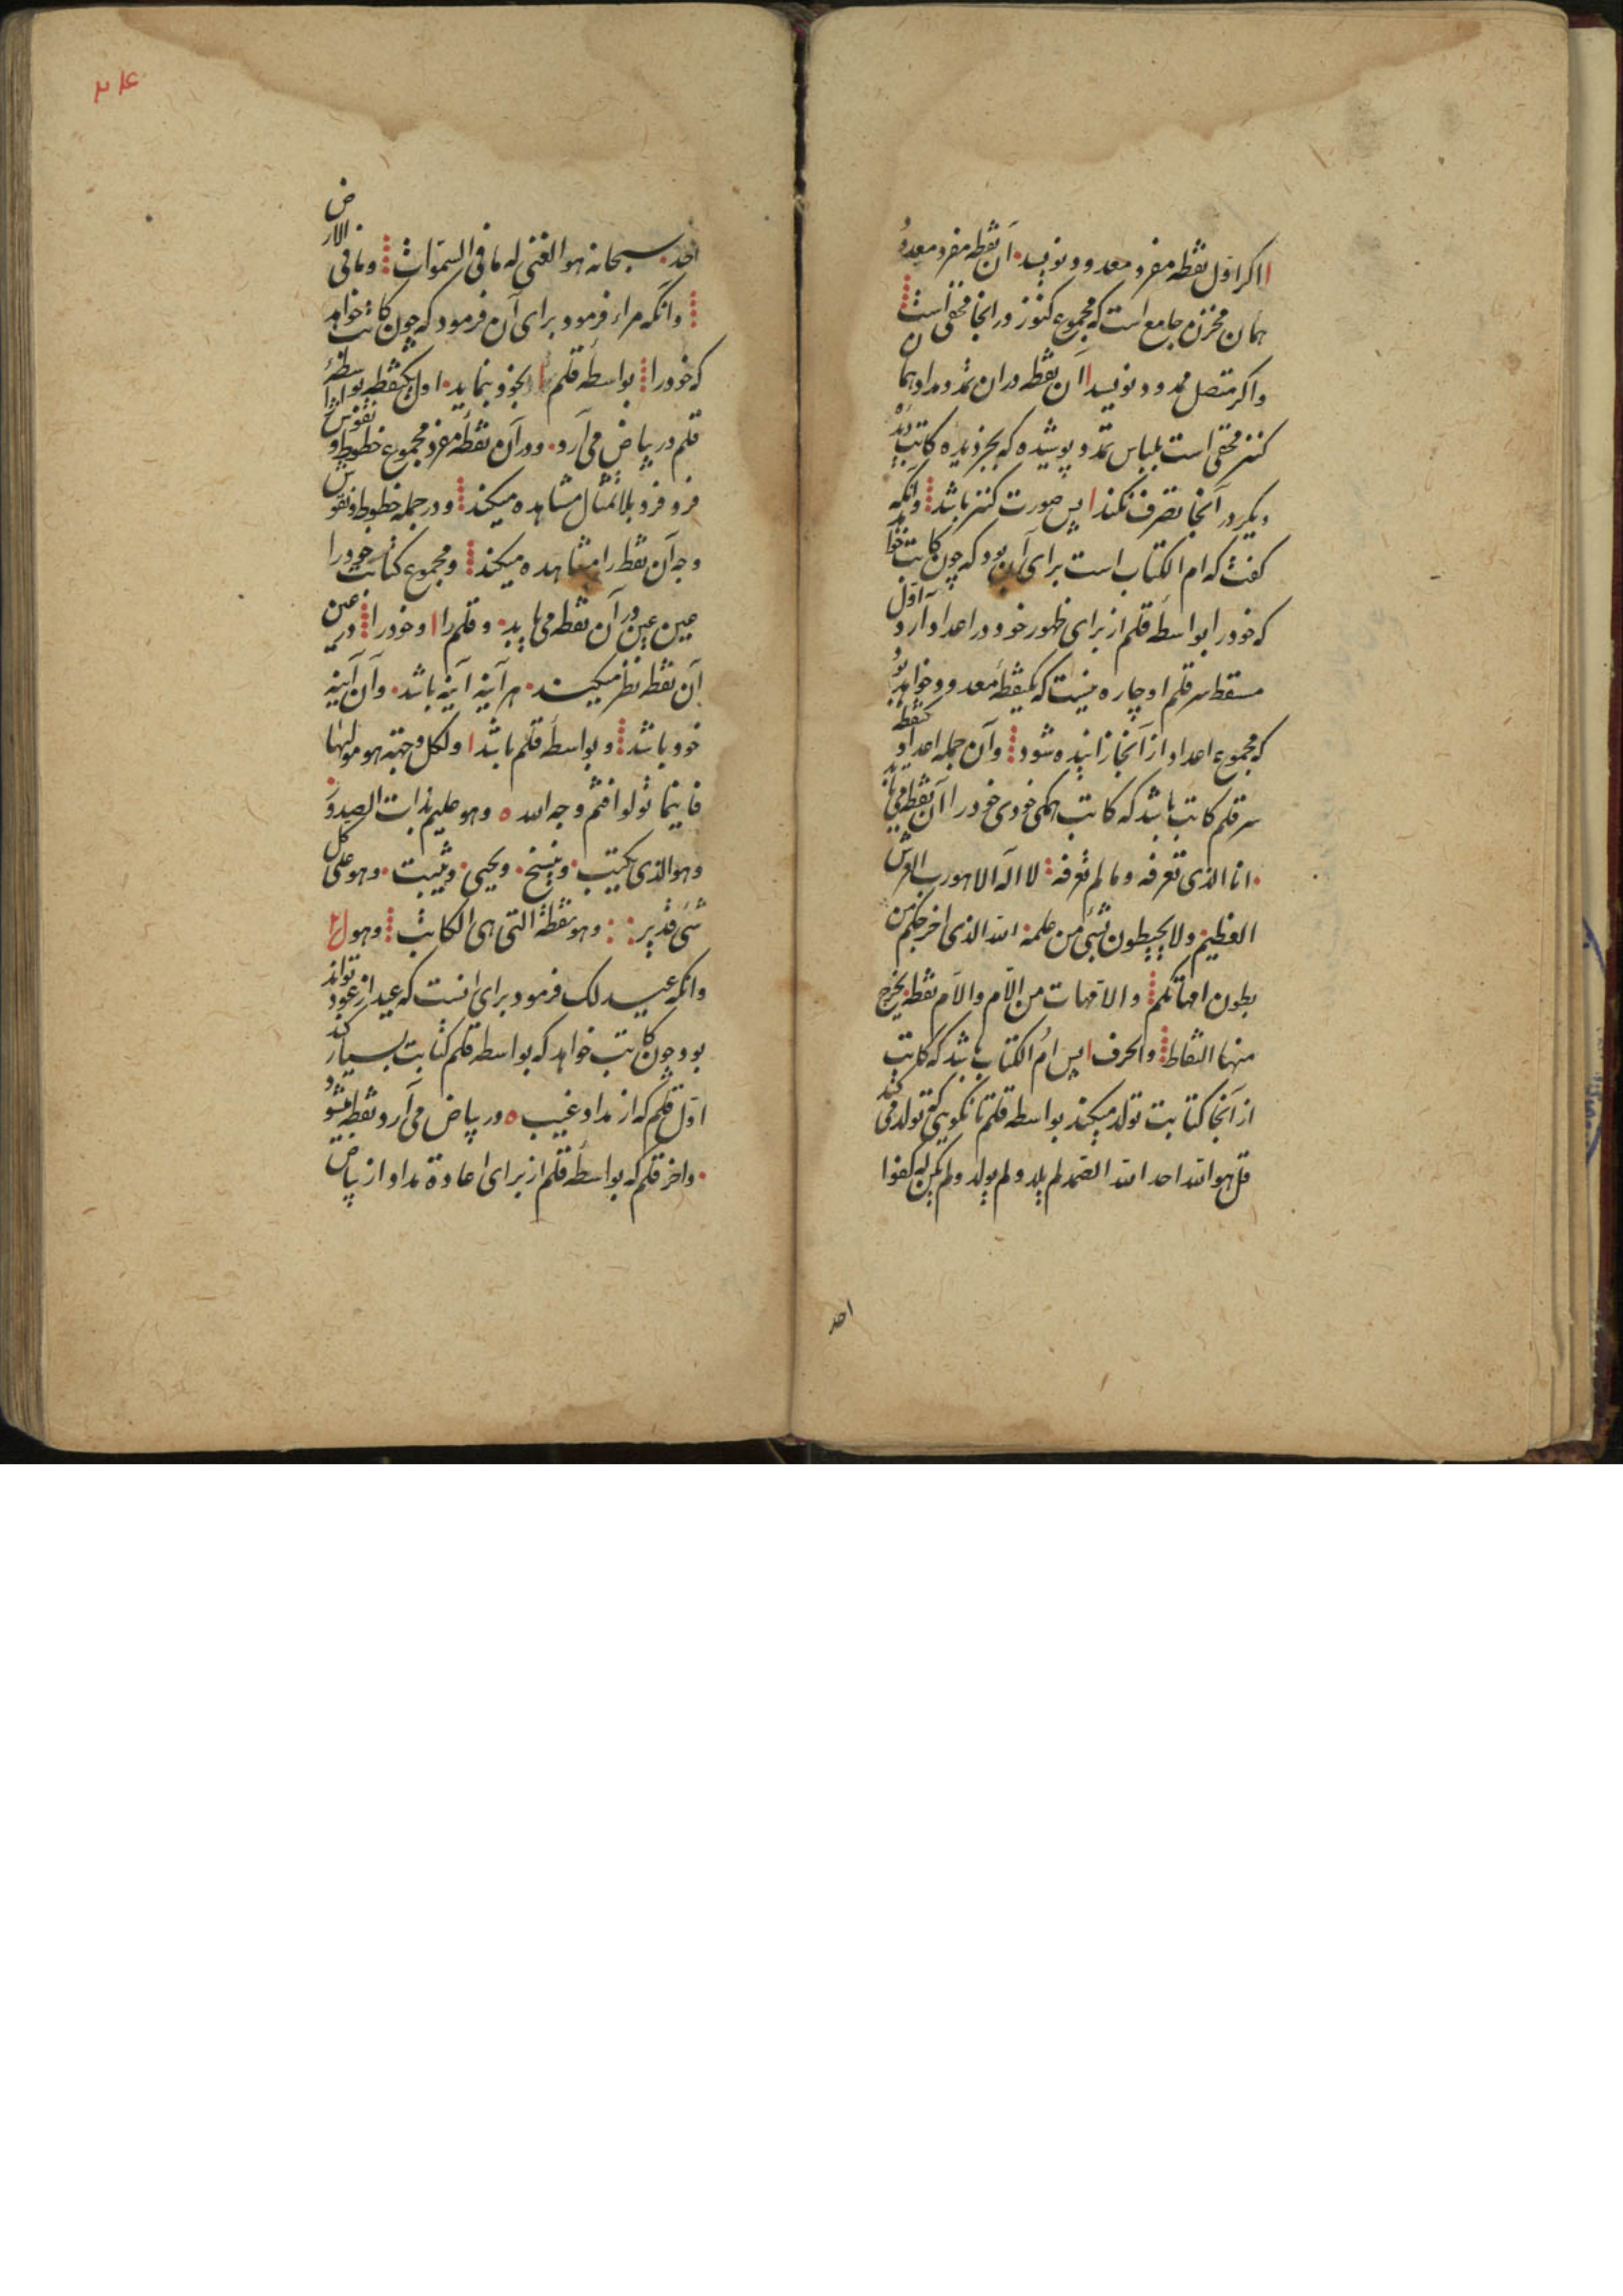 اکر اول نقطه مفرد معدود نویسد آن نقطه مفرد معدود
همان مخزن جامع است که مجموع کنوز در انجا مخفی است
واکر متصل ممدود نویسد آن نقطه در ان تمدد مداد همان
کنز مخفی است بلباس تمدد پوشیده که بجز دیده کاتب دیده
دیکر در آنجا تصرف نکند پس صورت کنز باشد وانکه
کفت که ام الکتاب است برای آن بود که چون کاتب خواهد
که خود را بواسطه قلم از برای ظهور خود در اعداد آرد اول
مسقط سر قلم او چاره نیست که یکنقطه معدود خواهد بود
که مجموع اعداد از آنجا زاینده شود وآن جمله اعداد یکنقطه
سر قلم کاتب باشد که کاتب همکی خودی خود را آن نقطه می
انا الذی تعرفه وما لم تعرفه لا اله الا هو رب العرش
العظیم ولا یحیطون بشیٔ من علمه الله الذی اخرجکم من
بطون امهاتکم والامهات من الام والام نقطه یخرج
منها النقاط والحرف پس ام الکتاب باشد که کاتب
از آنجا کتابت تولد میکند بواسطه قلم تا نکویی که تولد می کند
قل هو الله احد الله الصمد لم یلد ولم یولد ولم یکن له کفوا
احد
۲۴
احد سبحانه هو الغنی له ما فی السموات وما فی الارض
وآنکه مراء فرمود برای آن فرمود که چون کاتب خواهد
که خود را بواسطه قلم بخود بنماید اول یکنقطه بواسطه
قلم در بیاض می آرد ودر آن نقطه مفرد مجموع خطوط و نقوش
فرد فرد بلا تمثال مشاهده میکند ودر جمله خطوط و نقوش
وجه آن نقطه را مشاهده میکند ومجموع کتابت خود را
عین عین در آن نقطه می یابد وقلم را وخود را در عین
آن نقطه نظر میکند هر آینه آینه باشد وآن آینه
خود باشد وبواسطه قلم باشد ولکل وجهة هو مولیها
فاینما تولوا فثم وجه الله وهو علیم بذات الصدور
وهو الذی یکتب وینسخ ویحیی ویثبت وهو علی کل
شیٔ قدیر وهو نقطة التی هی الکاتب وهو
وانکه عید لک فرمود برای انست که عید از عود تواند
بود چون کاتب خواهد که بواسطه قلم کتابت بسیار کند
اول قلم که از مداد غیب در بیاض می آرد نقطه میشود
واخر قلم که بواسطه قلم از برای اعادة مداد از بیاض